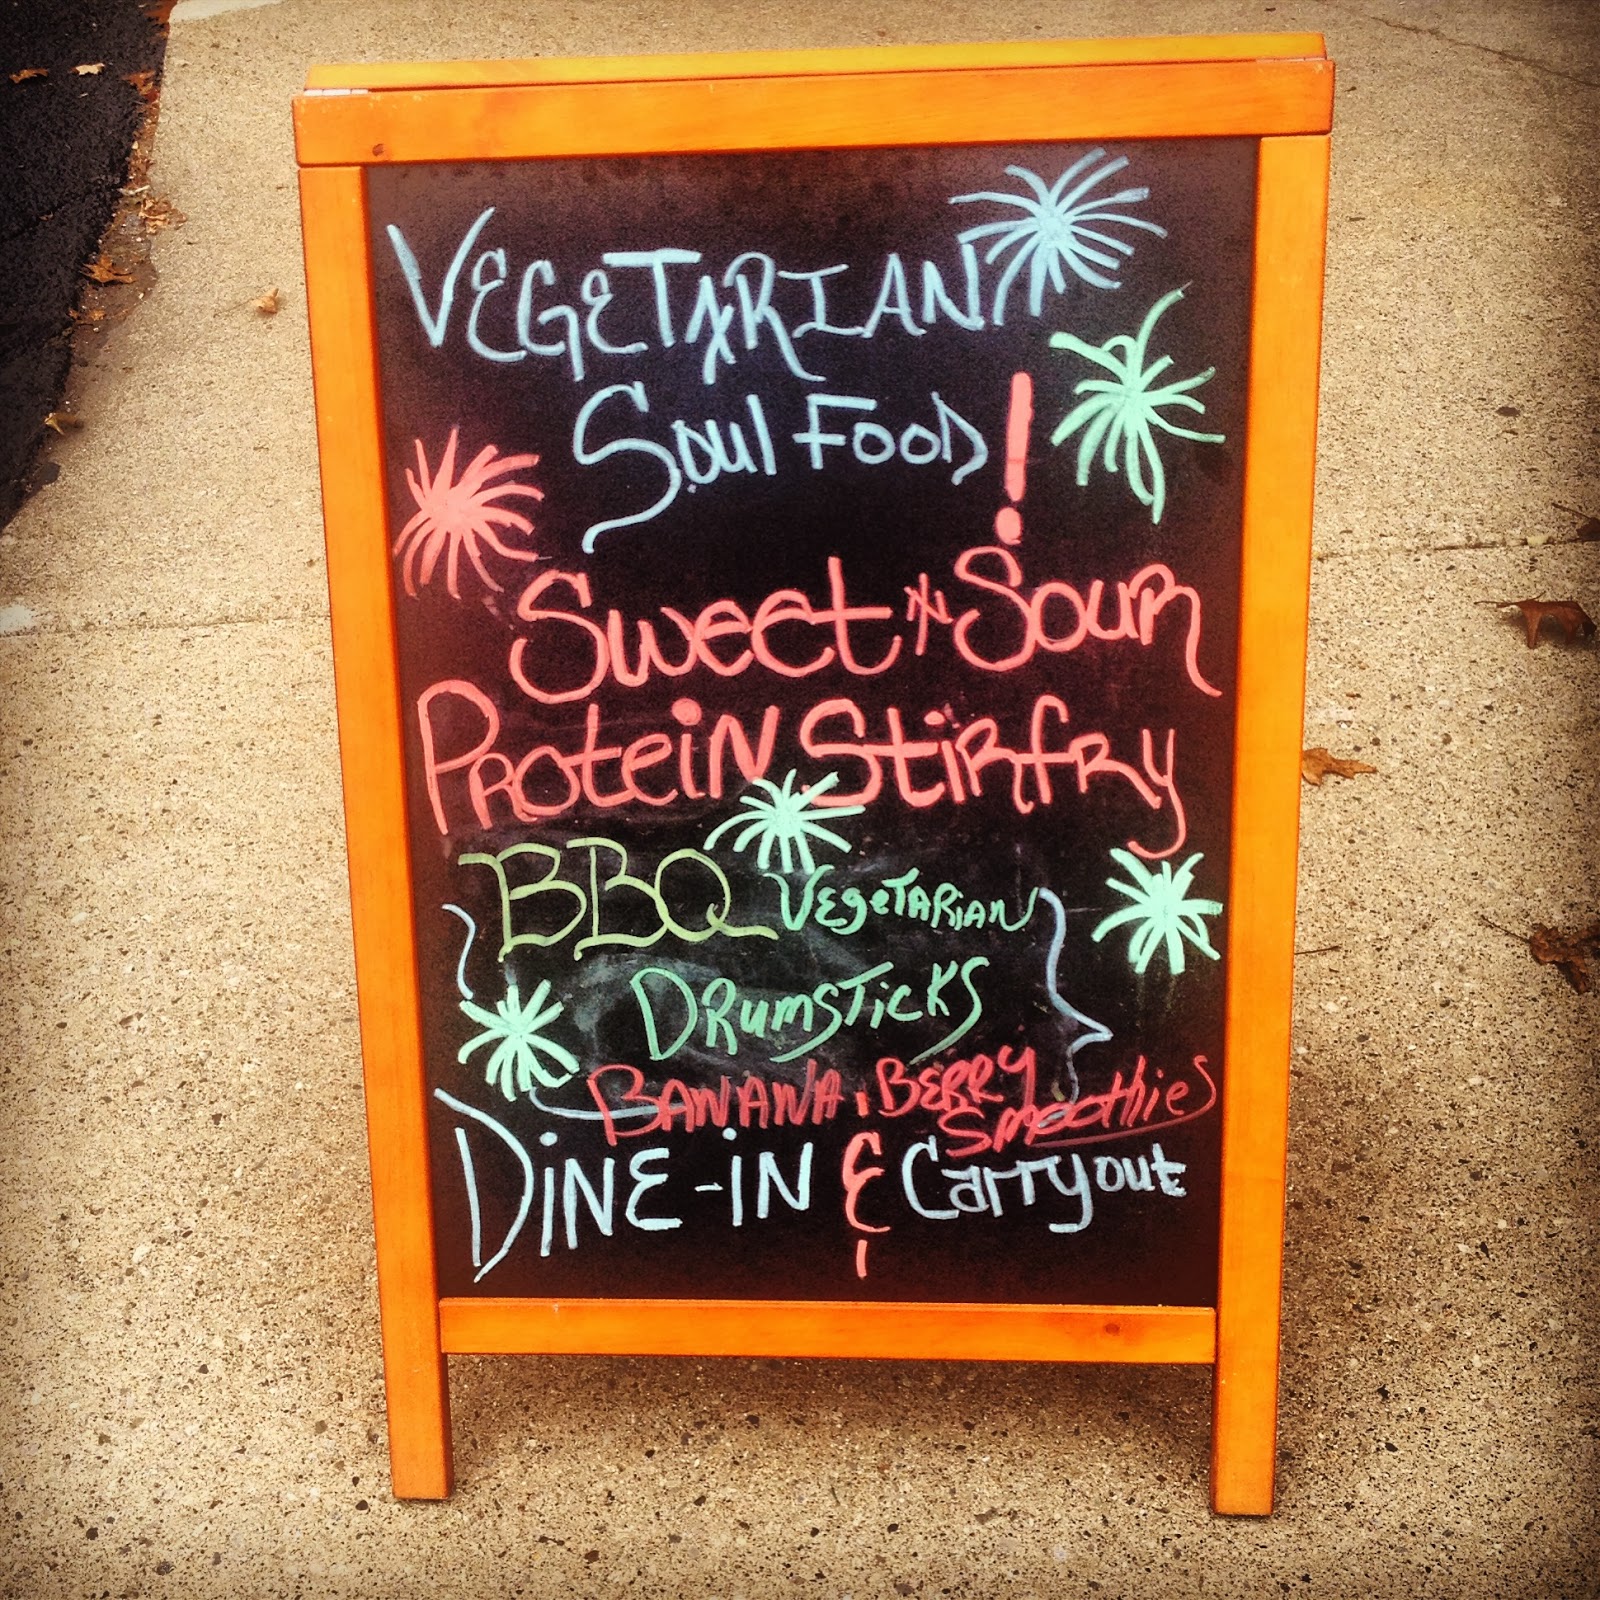 VEGETARIAN
Soul Food!
Sweet 'N Sour
Protein Stirfry
BBQ Vegetarian
Drumsticks
Banana, Berry
Smoothies
Dine-in & Carryout